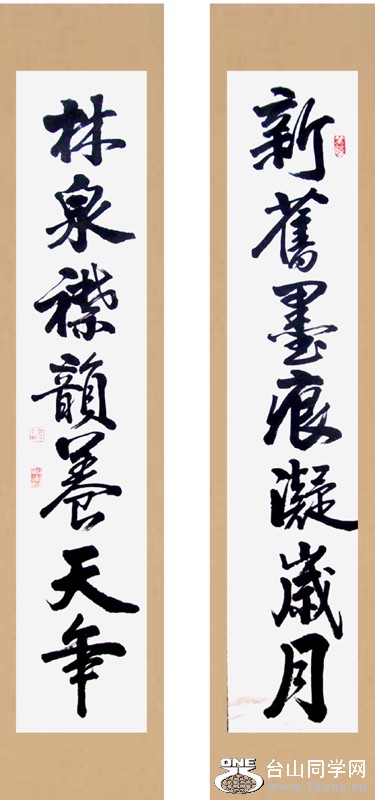 新舊墨痕凝歲月
林泉襟韻養天年
ONE
台山同学网
www.tsone.cn